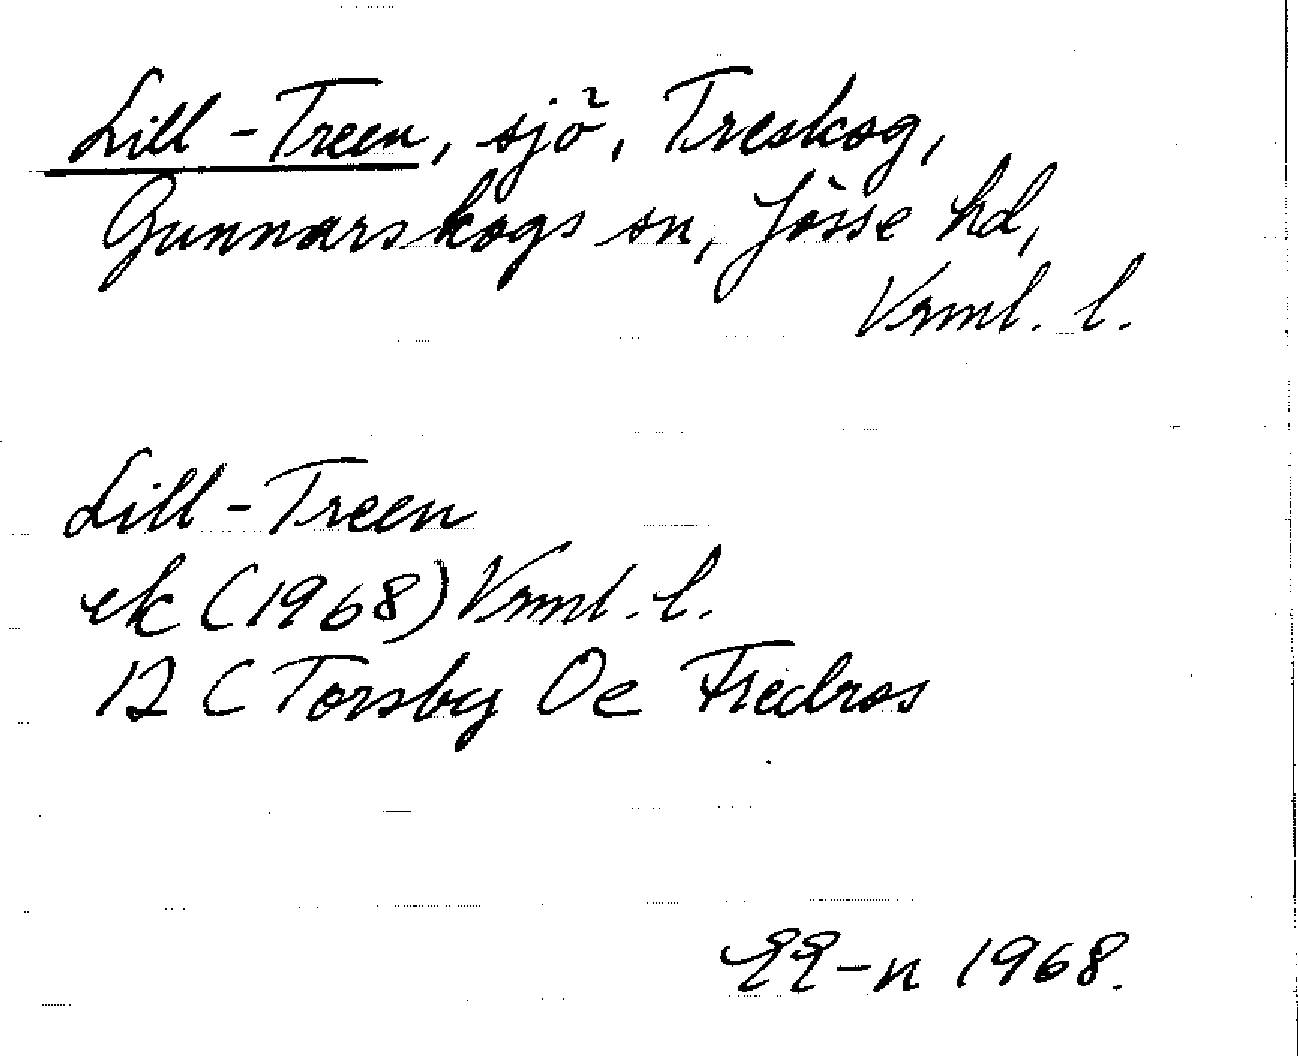 Lill-Treen, sjö, Treskog,
Gunnarskogs sn, Jösse hd,
Vrml. l.
Lill-Treen
ek (1968) Vrml. l.
12 C Torsby 0e Fredros
EE-n 1968.